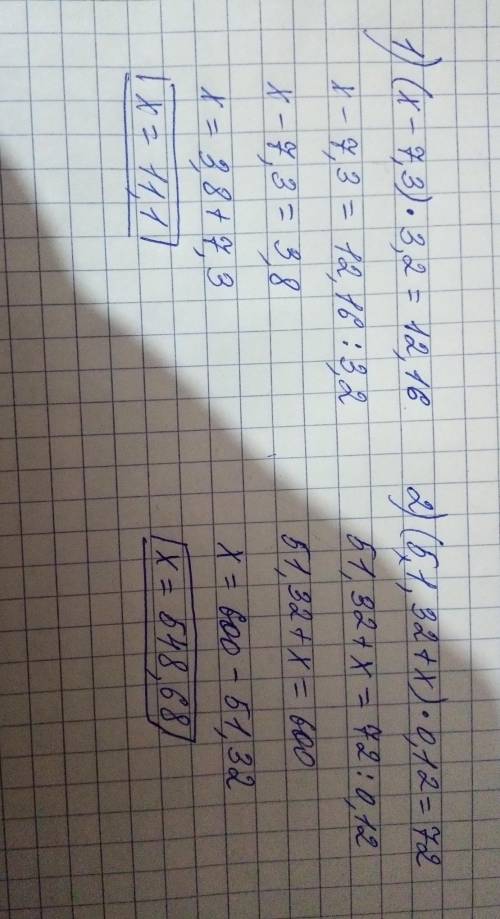 1) (x - 7,3) · 3,2 = 12,16
x - 7,3 = 12,16 : 3,2
x - 7,3 = 3,8
x = 3,8 + 7,3
x = 11,1
2) (51,32 + x) · 0,12 = 72
51,32 + x = 72 : 0,12
51,32 + x = 600
x = 600 - 51,32
x = 548,68